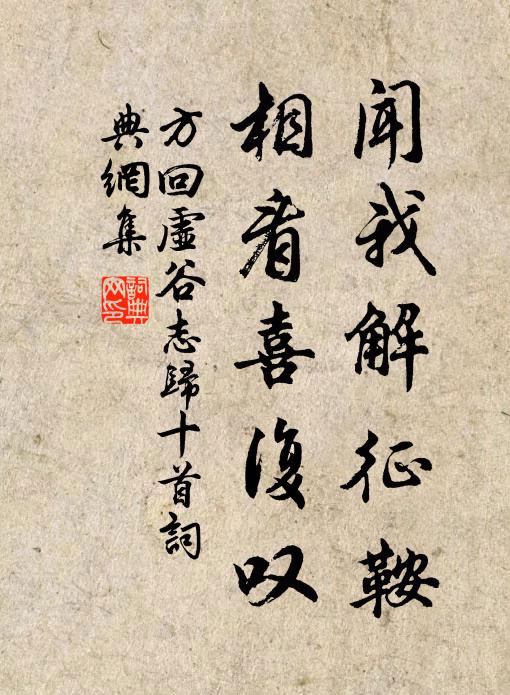 聞我解征鞍
相看喜復叹
方回虛谷志歸十首詞
典網集
詞典网印